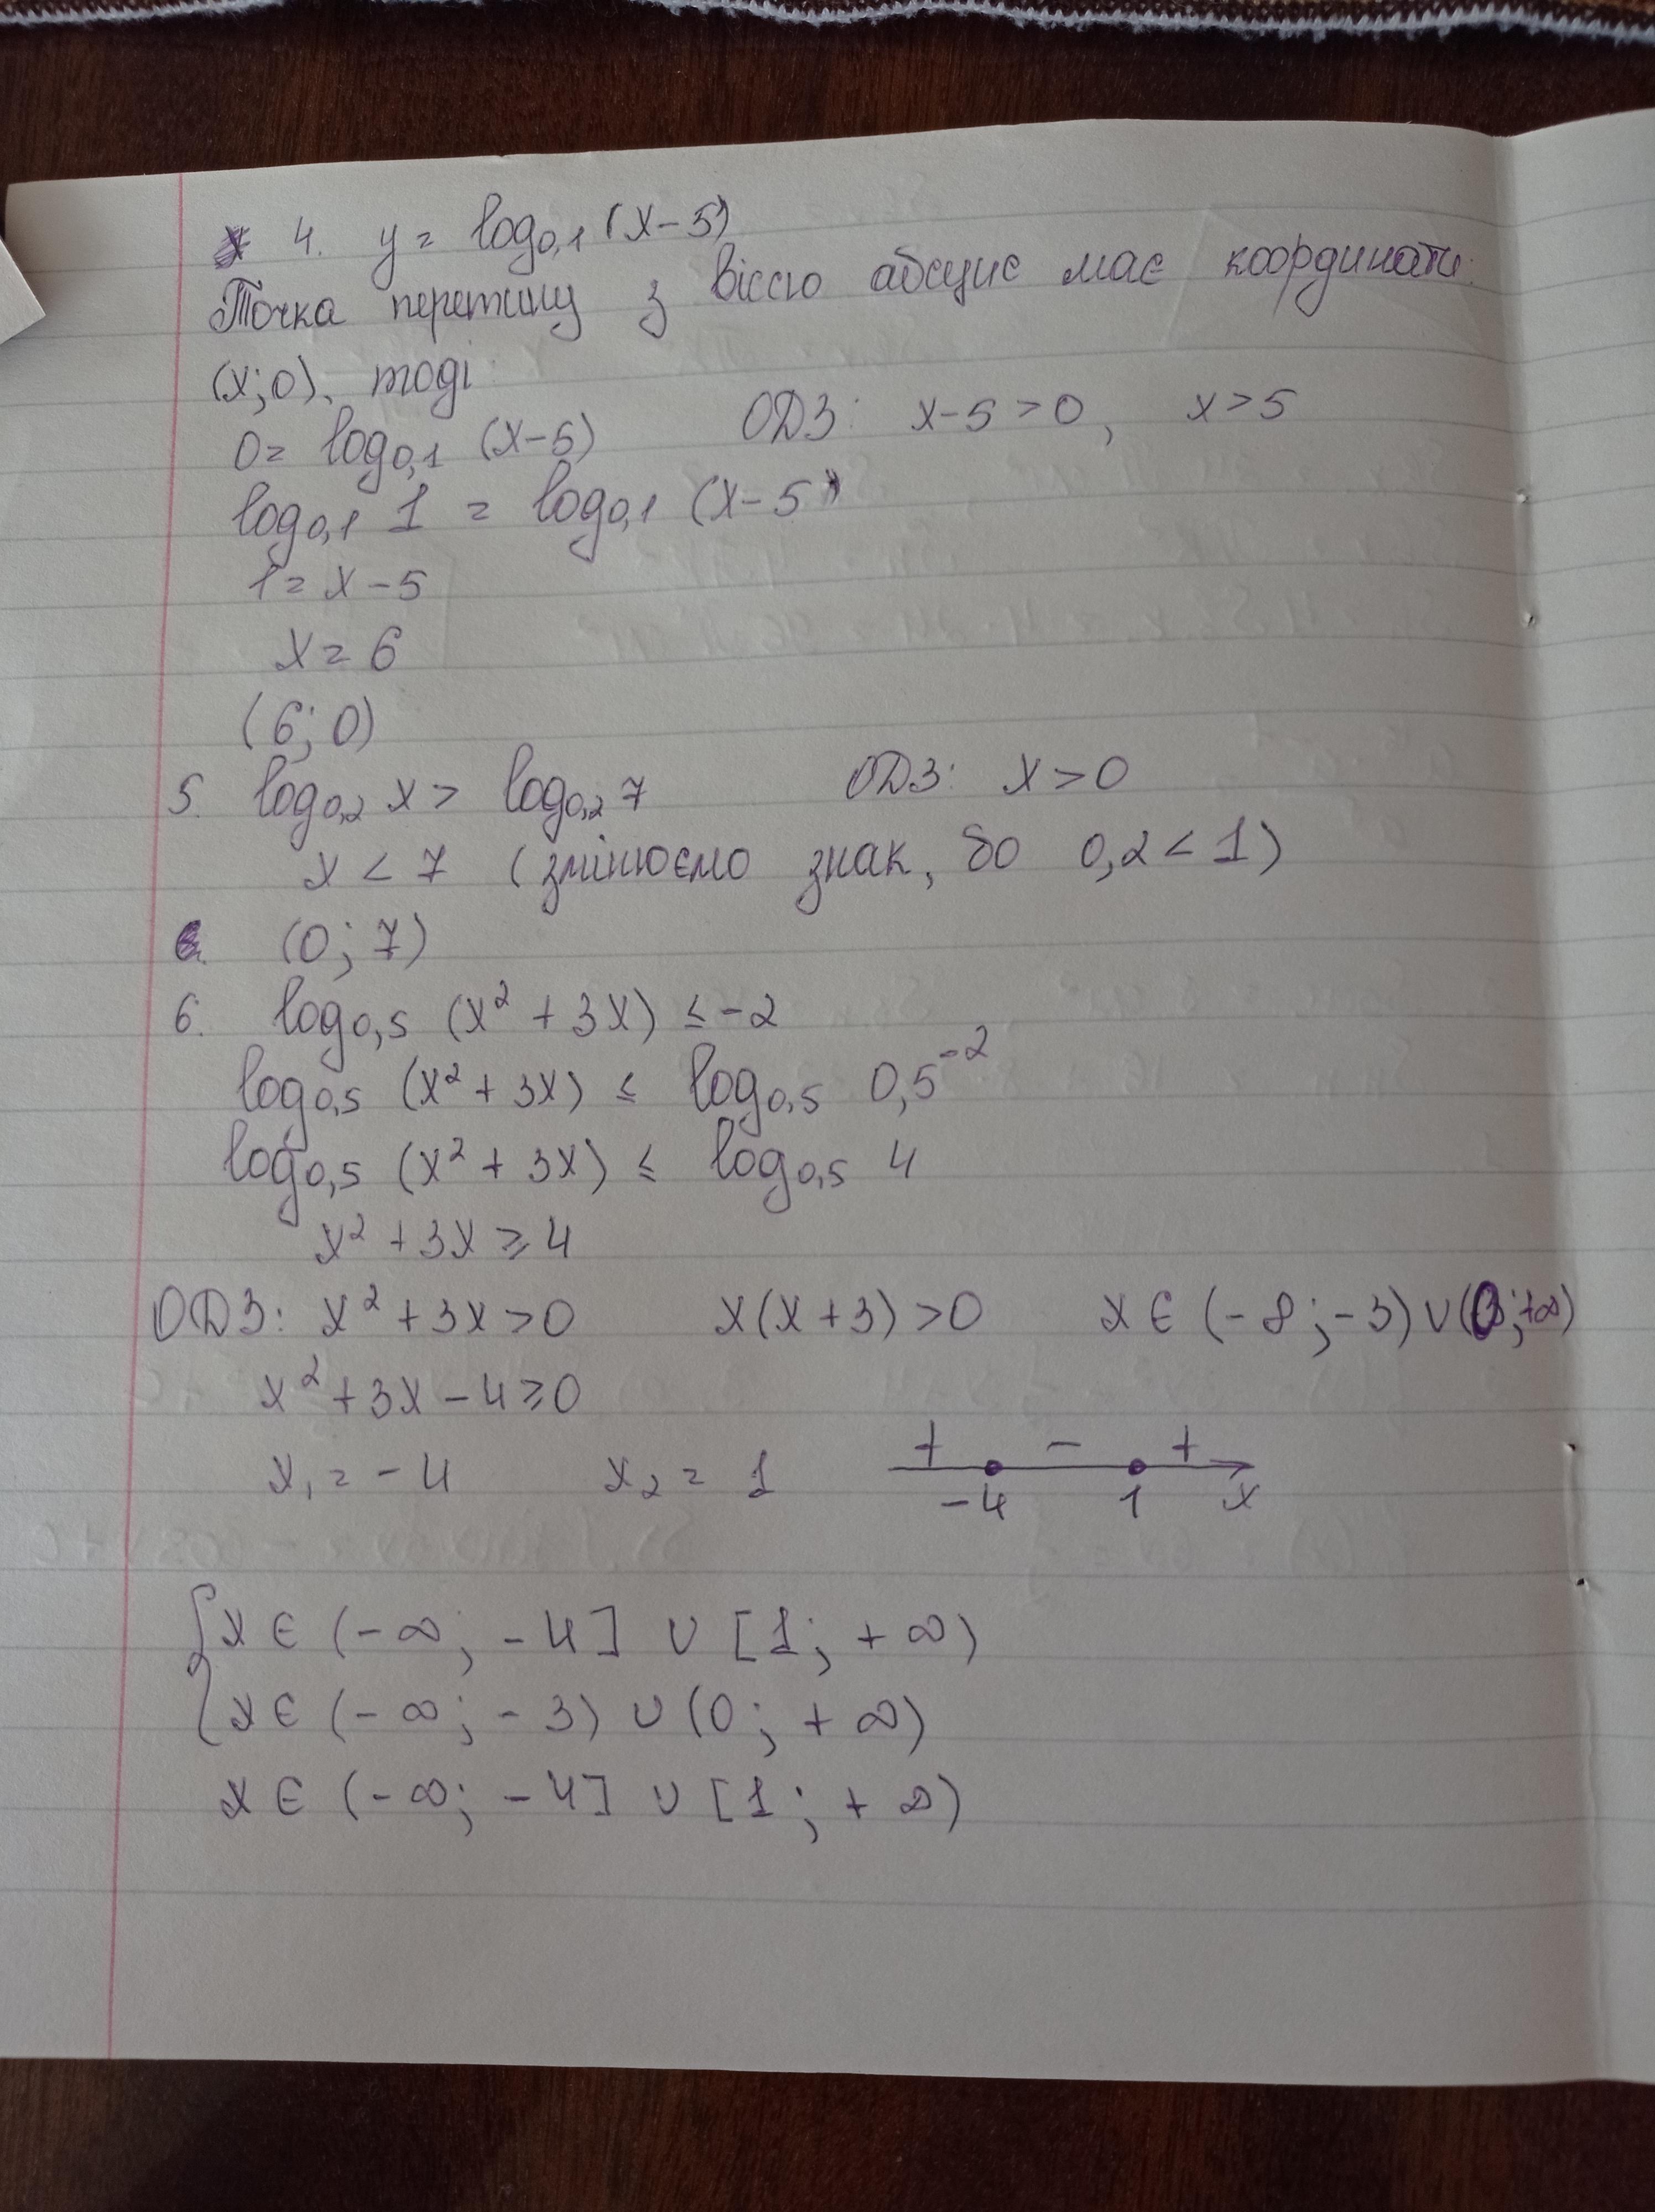 4. y = log₀,₁ (x-5)
Точка перетину з віссю абсцис має координати:
(x;0), тоді
0 = log₀,₁ (x-5) ОДЗ: x-5>0, x>5
log₀,₁ 1 = log₀,₁ (x-5)
1 = x-5
x = 6
(6; 0)
5. log₀,₂ x > log₀,₂ 7 ОДЗ: x>0
x < 7 (змінюємо знак, бо 0,2 < 1)
(0; 7)
6. log₀,₅ (x² + 3x) ≤ -2
log₀,₅ (x² + 3x) ≤ log₀,₅ 0,5⁻²
log₀,₅ (x² + 3x) ≤ log₀,₅ 4
x² + 3x ≥ 4
ОДЗ: x² + 3x > 0 x(x+3) > 0 x ∈ (-∞; -3) ∪ (0; +∞)
x² + 3x - 4 ≥ 0
x₁ = -4 x₂ = 1 + - +
-4 1 x
{ x ∈ (-∞; -4] ∪ [1; +∞)
x ∈ (-∞; -3) ∪ (0; +∞)
x ∈ (-∞; -4] ∪ [1; +∞)